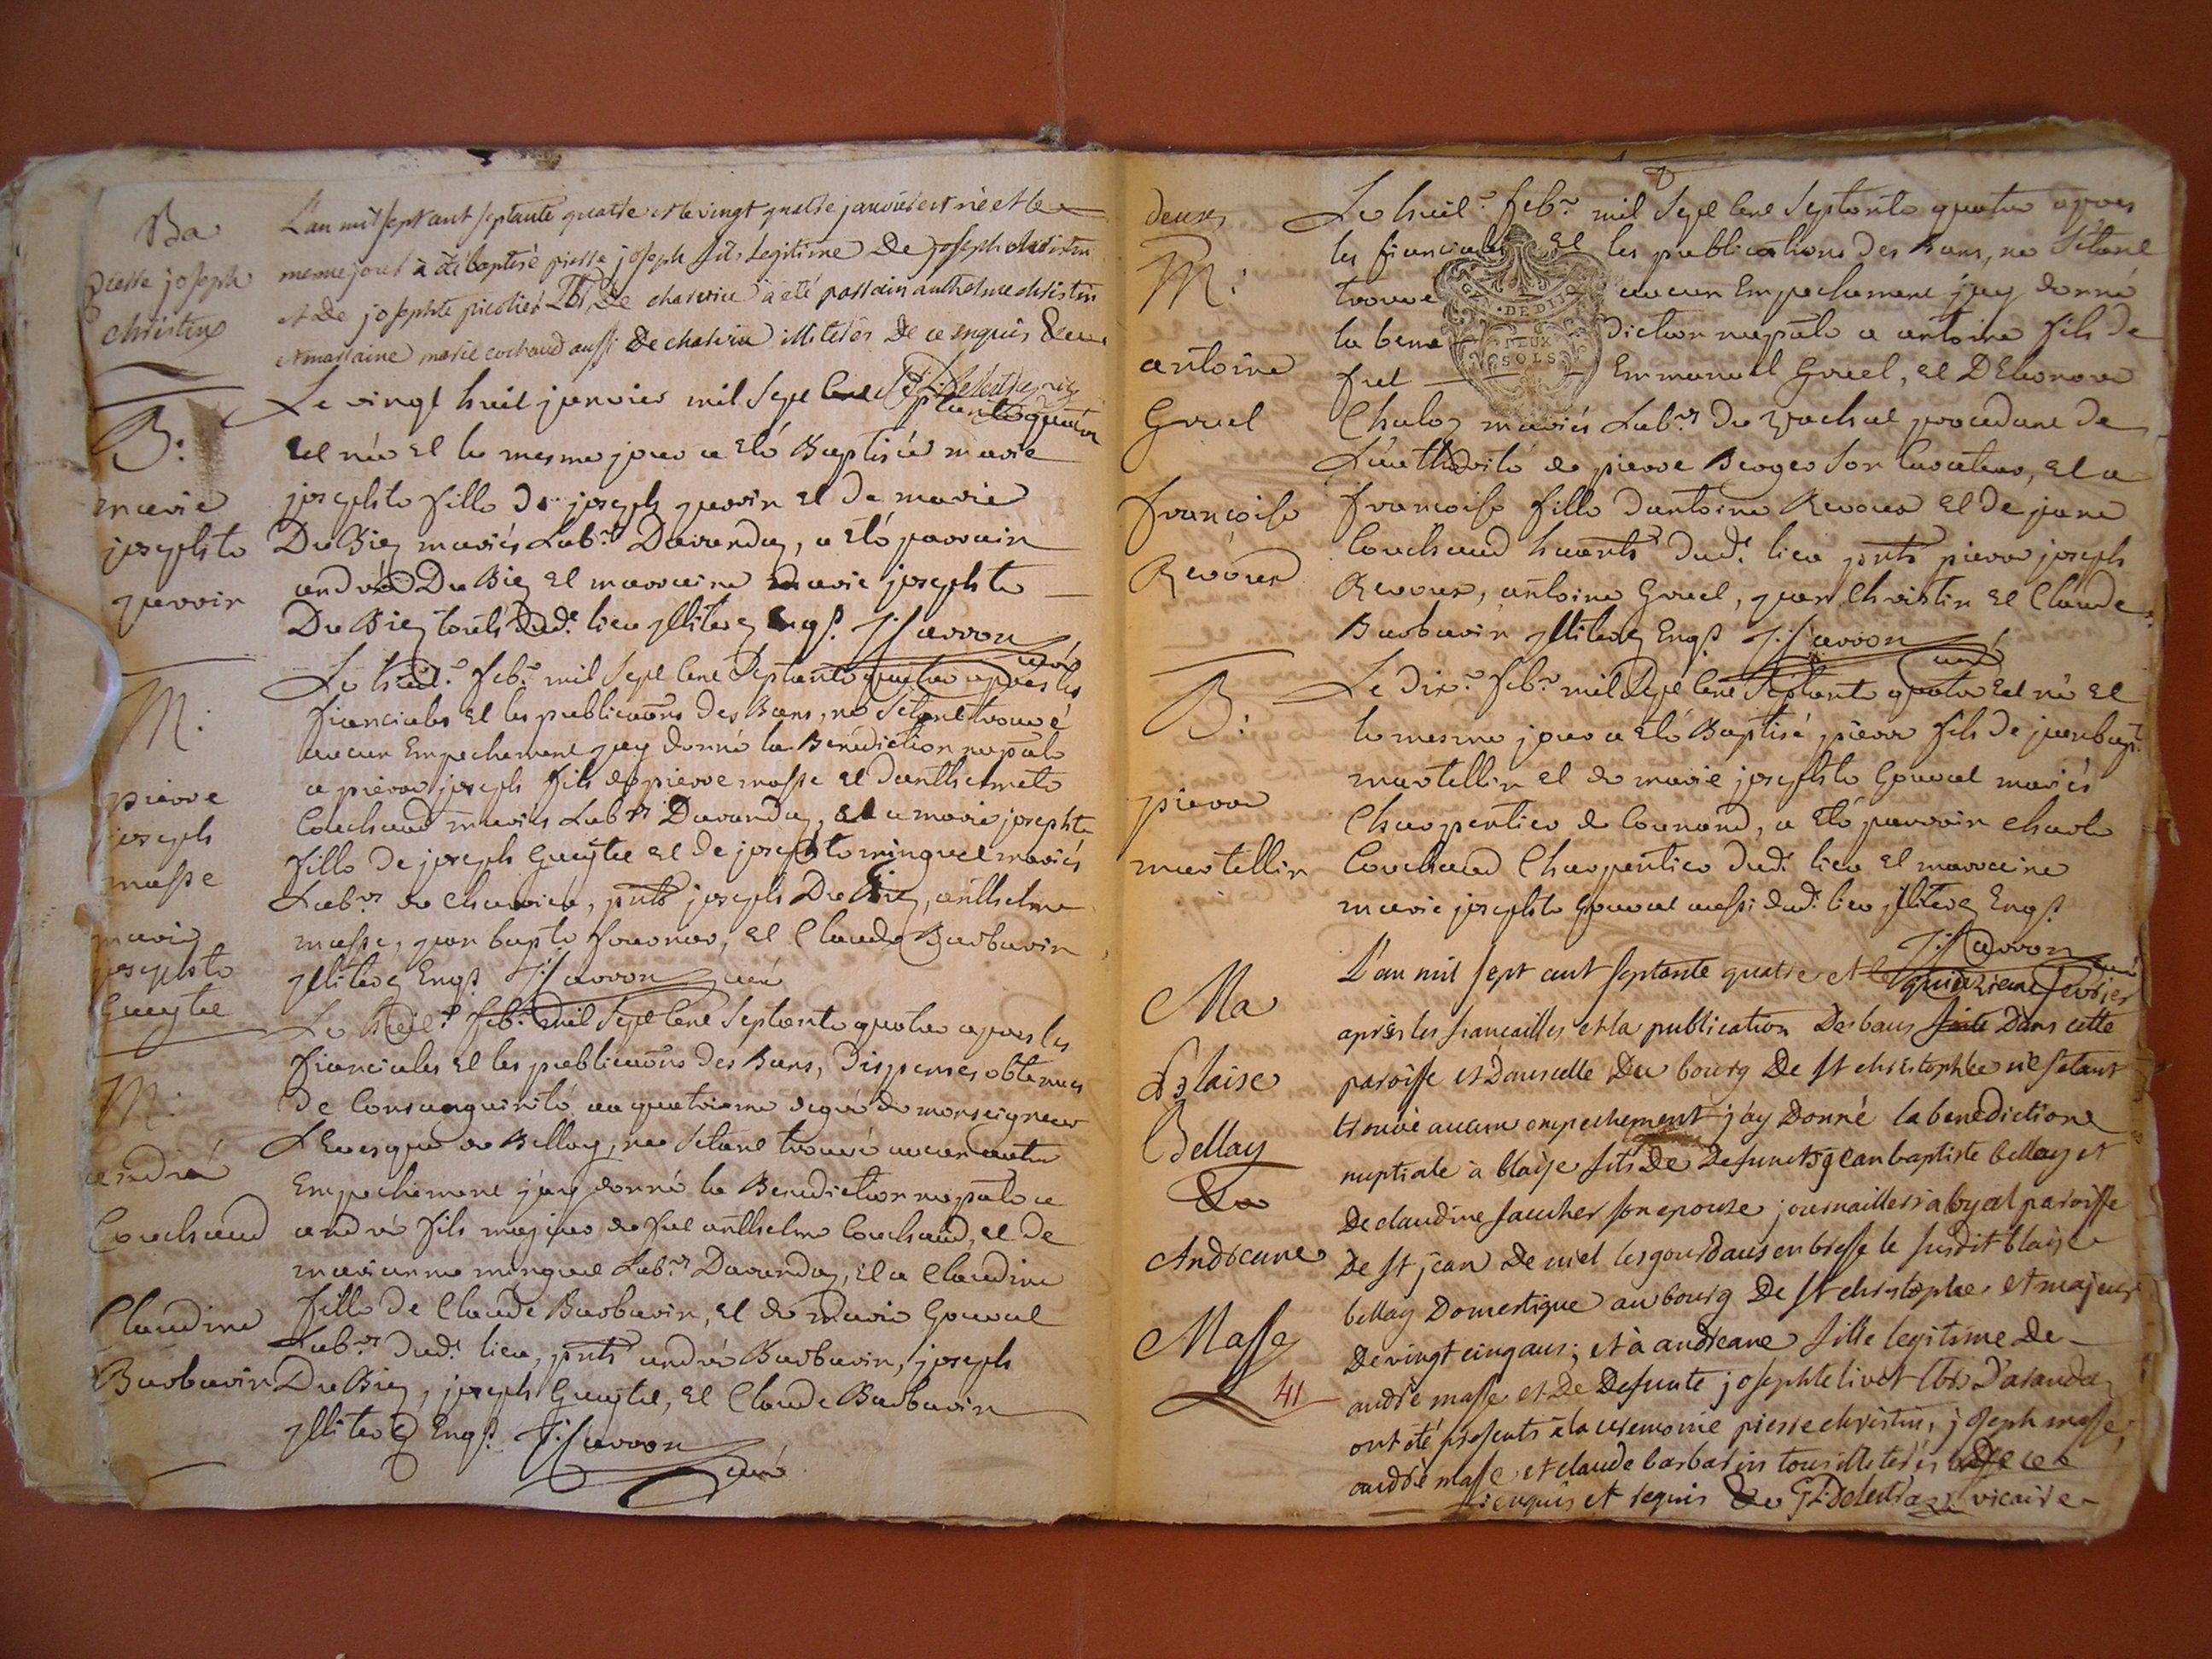 Ba
pierre joseph
christin
L'an mil sept cent septante quatre et le vingt quatre janvier est né et le
mesme jour à été baptisé pierre joseph fils légitime De joseph christin
et de josephte picolier De charvieu à été parrain anthelme christin
et marraine marie cochaud aussi De charvieu illiterés De ce enquis
B:
marie
josephte
guerrin
Le vingt huit janvier mil sept cent septante quatre
est née et le mesme jour a eté Baptisée marie
josephte fille de joseph guerrin et de marie
DuBiez mariés Lab.rs Daranda, a eté parrain
andré DuBiez et marraine marie josephte
DuBiez touts dud.t lieu illiterez Enqs. Jarron curé
M:
pierre
joseph
masse
marie
josephte
Gueytel
Le huit.e feb.r mil sept cent septante quatre apres les
fiancialles et les publications des Bans, ne s'étant trouvé
aucun Empechement jay donné la Benediction nuptale
a pierre joseph fils de pierre masse et danthelmete
Couchaud mariés Lab.rs Daranda, et a marie josephte
fille de joseph Gueytel et de josephte minguet mariés
Lab.rs de charvieu, pnts joseph DuBiez, anthelme
masse, jean bapte fournier, et Claude Barbarin
illiterez Enqs. Jarron curé
M:
andré
Couchaud
Claudine
Barbarin
Le huit.e feb.r mil sept cent septante quatre apres les
fiancialles et les publications des Bans, Dispenses obtenues
de Consanguinité au quatrieme degré de monseigneur
L'Evesque de Bellay, ne s'étant trouvé aucun autre
Empechement j'ay donné la Benediction nuptale a
andré fils majeur de fut anthelme Couchaud, et de
marianne minguet Lab.rs Daranda, et a Claudine
fille de Claude Barbarin, et de marie Gouval
Lab.rs dud.t lieu, pnts andré Barbarin, joseph
DuBiez, joseph Gueytel, et Claude Barbarin
illiterez Enqs. Jarron
curé
deux
M:
antoine
Gruel
françoise
Revour
Le huit.e feb.r mil sept cent septante quatre apres
les fiancialles et les publications des Bans, ne s'étant
trouvé aucun Empechement j'ay donné
la bene diction nuptale a antoine fils de
fut Emmanuel Gruel, et DEleonore
GEN DE DIJON
DEUX
SOLS
Chaloz mariés Lab.rs du procedant de
L'authorité de pierre Berger son Curateur, et a
françoise fille dantoine Revour et de jane
Couchaud habitants dud.t lieu pnts pierre joseph
Revour, antoine Gruel, jean Christin et Claude
Barbarin illiterez Enqs. Jarron curé
B:
pierre
martellin
Le dix.e feb.r mil sept cent septante quatre est né et
le mesme jour a eté Baptisé pierre fils de jean bapt.
martellin et de marie josephte Gouval mariés
Charpentier de Counand, a eté parrain charle
Couchaud Charpentier dud.t lieu et marraine
marie josephte Gouval aussi dud.t lieu illiterez Enqs.
Jarron curé
Ma
Blaise
Bellay
&
Andreane
Masse
41
L'an mil sept cent septante quatre et le quinzieme fevrier
après les fiancailles et la publication Des bans faite Dans cette
paroisse et Dans celle Du bourg De st christophle ne s'etant
trouvé aucun empechement j'ay Donné la benediction
nuptiale à blaise fils De Defunts jean baptiste bellay et
De claudine faucher son epouse journailliers paroisse
De st jean De niel les gourdans en bresse le susdit blaise
bellay Domestique au bourg De st christophle et majeur
De vingt cinq ans; et à andréane fille legitime De
andré masse et De Defunte josephte livet lbrs D'aranda
ont été presents à la ceremonie pierre christin, joseph masse,
andré masse et claude barbarin tous illiterés De ce
enquis et requis vicaire